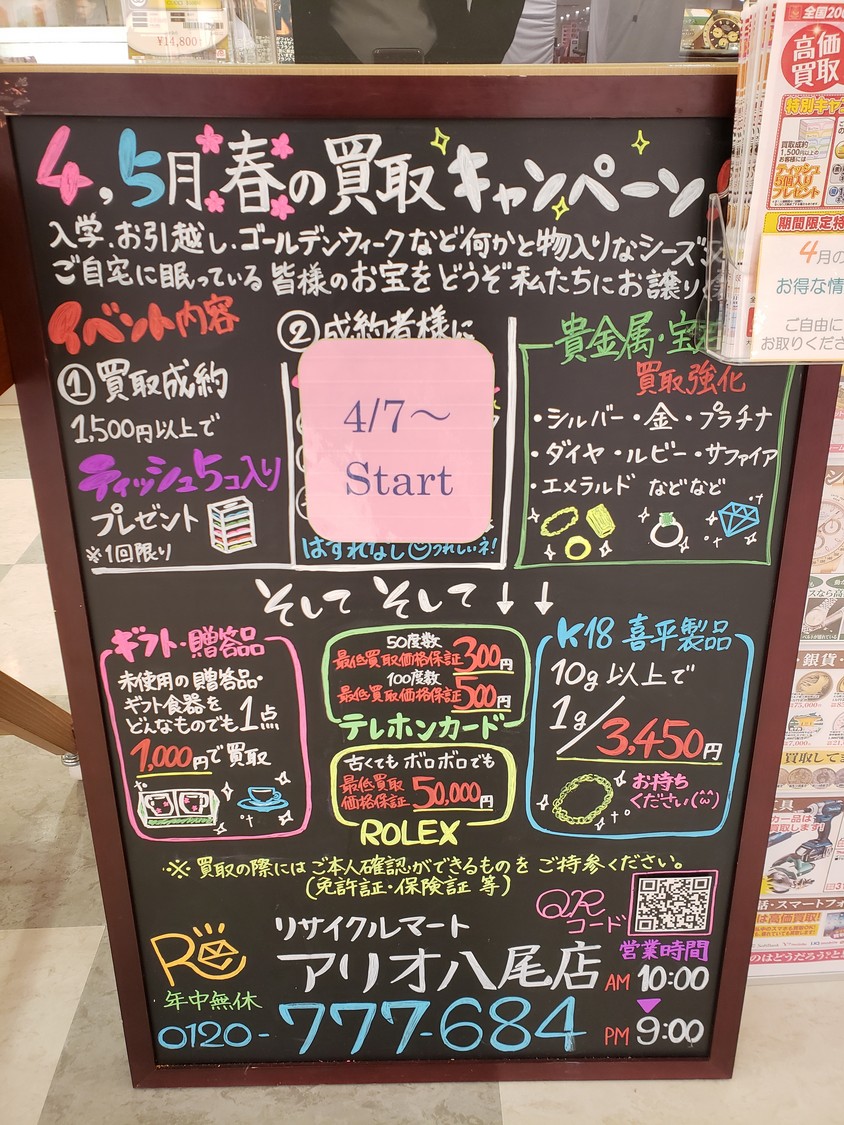 ¥14,800
4,5月 春の買取キャンペーン
入学、お引越し、ゴールデンウィークなど何かと物入りなシーズ
ご自宅に眠っている 皆様のお宝をどうぞ私たちにお譲り
イベント内容
①買取成約
1,500円以上で
ティッシュ5コ入り
プレゼント
※1回限り
②成約者様に
4/7～
Start
はずれなしうれしいネ!
貴金属・宝
買取強化
・シルバー・金・プラチナ
・ダイヤ・ルビー・サファイア
・エメラルド などなど
そして そして↓↓
ギフト・贈答品
未使用の贈答品・
ギフト食器を
どんなものでも1点
1,000円で買取
50度数
最低買取価格保証300円
100度数
最低買取価格保証500円
テレホンカード
古くても ボロボロでも
最低買取
価格保証 50,000円
ROLEX
K18 喜平製品
10g以上で
1g/3,450円
お持ち
ください(^^)
※買取の際にはご本人確認ができるものを ご持参ください。
(免許証・保険証 等)
QR
コード
リサイクルマート
アリオ八尾店
年中無休
0120-777-684
営業時間
AM 10:00
PM 9:00
全国20
高価
買取
特別キャ
買取成約
1,500円以上の
お客様には
ティッシュ
5個入り
プレゼント
期間限定特
4月の
お得な情
ご自由に
お取りくださ
・銀貨・
買取して
工具
カー品は
買取します!
話・スマートフォ
は高価買取!
SoftBank
のはどうだろう?と